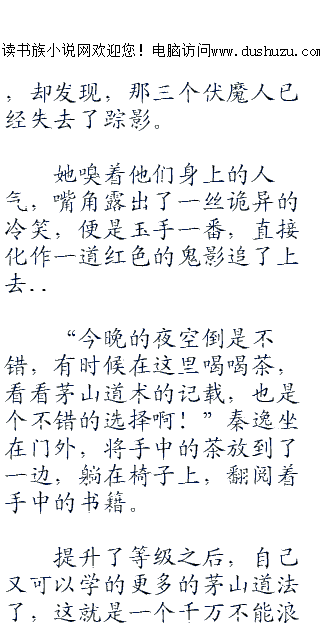 读书族小说网欢迎您！电脑访问www.dushuzu.com
，却发现，那三个伏魔人已
经失去了踪影。
她嗅着他们身上的人
气，嘴角露出了一丝诡异的
冷笑，便是玉手一番，直接
化作一道红色的鬼影追了上
去..
“今晚的夜空倒是不
错，有时候在这里喝喝茶，
看看茅山道术的记载，也是
个不错的选择啊！”秦逸坐
在门外，将手中的茶放到了
一边，躺在椅子上，翻阅着
手中的书籍。
提升了等级之后，自己
又可以学的更多的茅山道法
了，这就是一个千万不能浪